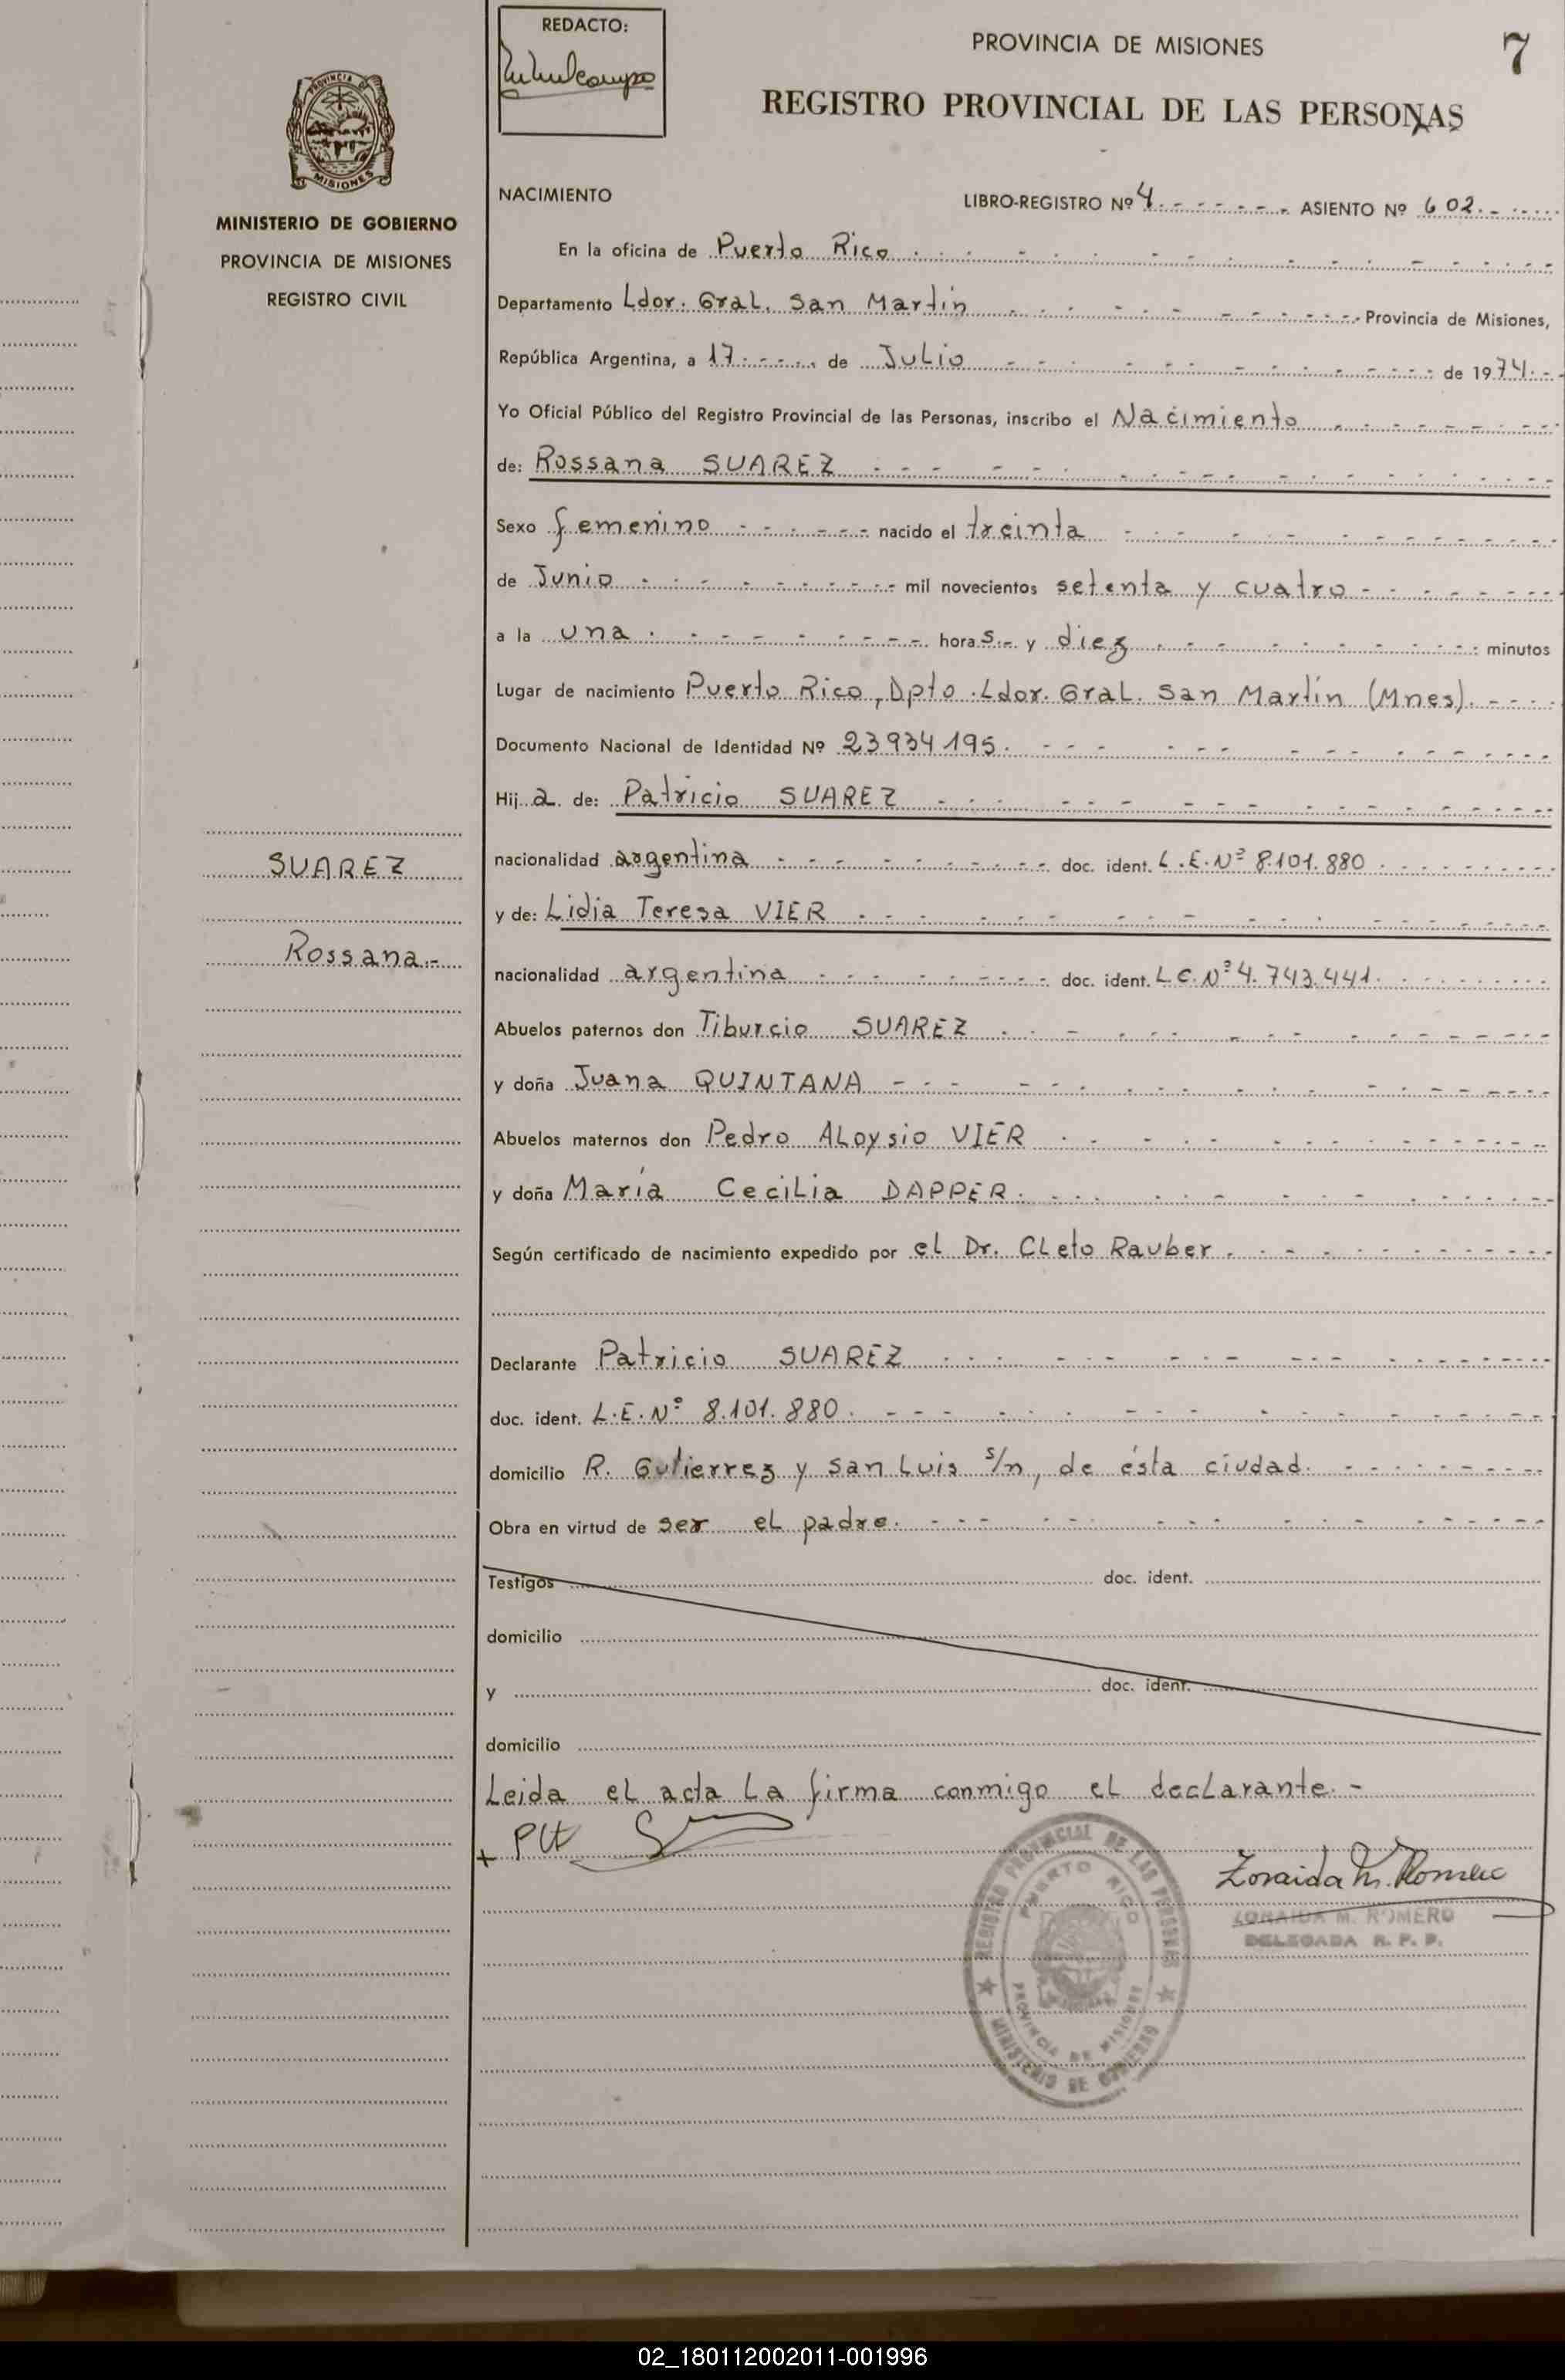 REDACTO:
PROVINCIA DE MISIONES
7
REGISTRO PROVINCIAL DE LAS PERSONAS
PROVINCIA DE
MISIONES
MINISTERIO DE GOBIERNO
PROVINCIA DE MISIONES
REGISTRO CIVIL
NACIMIENTO
LIBRO-REGISTRO Nº 4 ASIENTO Nº 602.
En la oficina de Puerto Rico
Departamento Ldor. Gral. San Martín Provincia de Misiones,
República Argentina, a 17 de Julio de 1974.
Yo Oficial Público del Registro Provincial de las Personas, inscribo el Nacimiento
de: Rossana SUAREZ
Sexo femenino nacido el treinta
de Junio mil novecientos setenta y cuatro
a la una horas y diez minutos
Lugar de nacimiento Puerto Rico, Dpto. Ldor. Gral. San Martín (Mnes).
Documento Nacional de Identidad Nº 23934195.
Hija de: Patricio SUAREZ
nacionalidad argentina doc. ident. L.E.Nº 8.101.880
y de: Lidia Teresa VIER
nacionalidad argentina doc. ident. L.C.Nº 4.743.441.
Abuelos paternos don Tiburcio SUAREZ
y doña Juana QUINTANA
Abuelos maternos don Pedro Aloysio VIER
y doña María Cecilia DAPPER.
Según certificado de nacimiento expedido por el Dr. Cleto Rauber.
Declarante Patricio SUAREZ
doc. ident. L.E.Nº 8.101.880.
domicilio R. Gutierrez y San Luis s/n, de ésta ciudad.
Obra en virtud de ser el padre.
Testigos doc. ident.
domicilio
y doc. ident.
domicilio
Leida el acta la firma conmigo el declarante.-
SUAREZ
Rossana.-
Zoraida M. Romero
ZORAIDA M. ROMERO
DELEGADA R. P. P.
REGISTRO PROVINCIAL DE LAS PERSONAS
PUERTO RICO
PROVINCIA DE MISIONES
MINISTERIO DE GOBIERNO
02_180112002011-001996